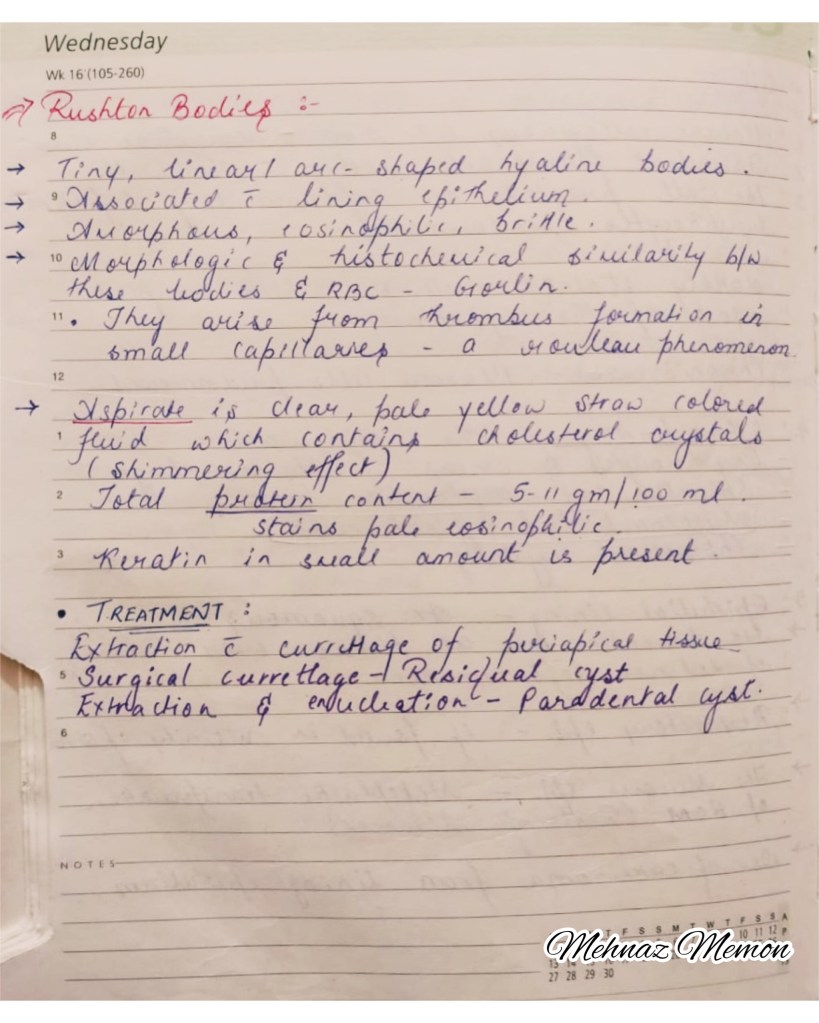 Wednesday
Wk 16 (105-260)
→ Rushton Bodies :-
8
→ Tiny, linear/ arc-shaped hyaline bodies.
→ 9 Associated c̄ lining epithelium.
→ Amorphous, eosinophilic, brittle.
→ 10 Morphologic & histochemical similarity b/w
these bodies & RBC - Gorlin.
11 • They arise from thrombus formation in
small capillaries - a rouleau phenomenon.
12
→ Aspirate is clear, pale yellow straw colored
1 fluid which contains cholesterol crystals
(shimmering effect)
2 Total protein content - 5-11 gm/100 ml.
stains pale eosinophilic.
3 Keratin in small amount is present.
• TREATMENT :
Extraction c̄ currettage of periapical tissue
5 Surgical currettage - Residual cyst
Extraction & enucleation - Paradental cyst.
6
NOTES
T F S S M T W T F S S A
10 11 12 P
Mehnaz Memon
27 28 29 30